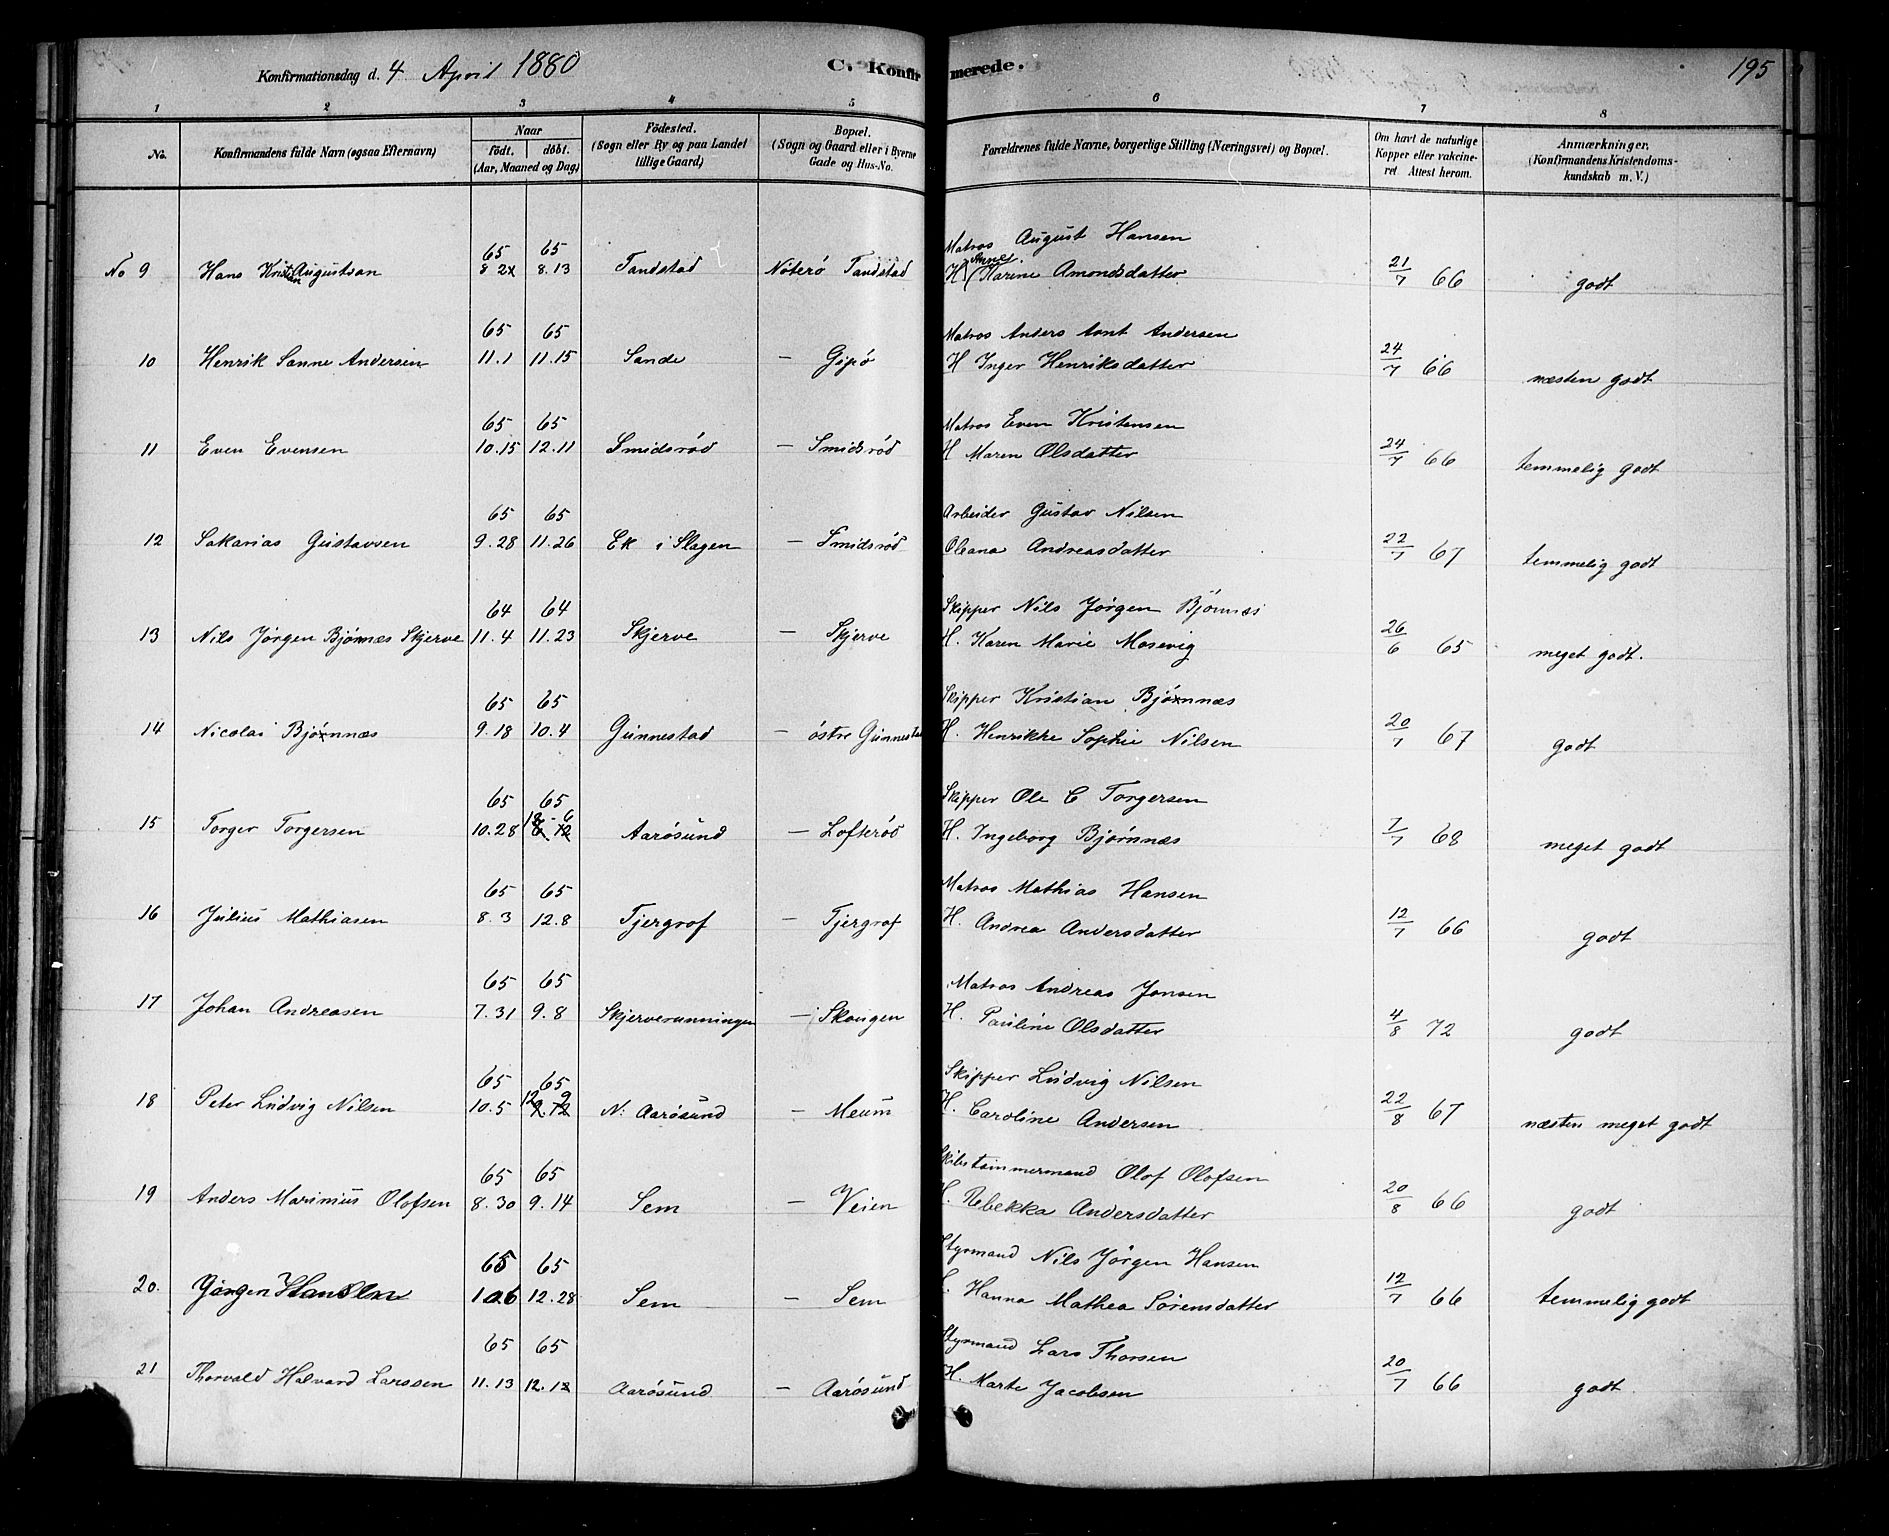 Konfirmationsdag d. 4 April 1880
C. Konfirmerede.
195
1 2 3 4 5 6 7 8
No.
Konfirmandens fulde Navn (ogsaa Efternavn)
Naar
födt. döbt.
(Aar, Maaned og Dag)
Födested.
(Sogn eller By og paa Landet
tillige Gaard)
Bopæl.
(Sogn og Gaard eller i Byerne
Gade og Hus-No.
Forældrenes fulde Navne, borgerlige Stilling (Næringsvei) og Bopæl.
Om havt de naturlige
Kopper eller vakcine-
ret Attest herom.
Anmærkninger.
(Konfirmandens Kristendoms-
kundskab m. V.)
65 65 Matros August Hansen
No 9 Hans Kristian Augustson 8 8.13 Tandstad Nøterø Tandstad H. Anne Karine Amondsdatter 21/7 66 godt
65 65 Matros Anders Arnt Andersen
10 Henrik Sanne Andersen 11.1 11.15 Sande — Gipø H Inger Henriksdatter 24/7 66 næsten godt
65 65 Matros Even Kristensen
11 Even Evensen 10.15 12.11 Smidsrød — Smidsrød H Maren Olsdatter 24/7 66 temmelig godt
65 65 Arbeider Gustav Nilsen
12 Sakarias Gustavsen 9.28 11.26 Ek i Slagen — Smidsrød Oleana Andreasdatter 22/7 67 temmelig godt
64 64 Skipper Nils Jørgen Bjönnæs
13 Nils Jørgen Bjønnæs Skjerve 11.4 11.23 Skjerve — Skjerve H. Karen Marie Mosevig 26/6 65 meget godt.
65 65 Skipper Kristian Bjønnæs
14 Nicolai Bjønnæs 9.18 10.4 Gunnestad — østre Gunnestad H. Henrikke Sophie Nilsen 20/7 67 godt
65 65 Skipper Ole C Torgersen
15 Torger Torgersen 10.28 12-6 Aarøsund — Lofterød H. Ingeborg Bjørnnæs 7/7 68 meget godt
65 65 Matros Mathias Hansen
16 Julius Mathiasen 8.3 12.8 Tjergrof — Tjergrof H. Andrea Andersdatter 12/7 66 godt
65 65 Matros Andreas Jonsen
17 Johan Andreasen 7.31 9.8 Skjerverunningen — Skougen H. Pauline Olsdatter 4/8 72 godt
65 65 Skipper Ludvig Nilsen
18 Peter Ludvig Nilsen 10.5 12 9 N: Aarøsund — Meum H. Caroline Andersen 22/8 67 næsten meget godt
65 65 Skibstømmermand Olof Olofsen
19 Anders Marinius Olofsen 8.30 9.14 Sem — Veien H. Rebekka Andersdatter 20/8 66 godt
65 65 Styrmand Nils Jørgen Hansen
20. Jørgen Hansen 12.28 Sem — Sem H. Hanna Mathea Sørensdatter 12/7 66 temmelig godt
65 65 Styrmand Lars Thorsen
21 Thorvald Halvard Larssen 11.13 12.12 Aarøsund — Aarøsund H. Marte Jacobsen 20/7 66 godt